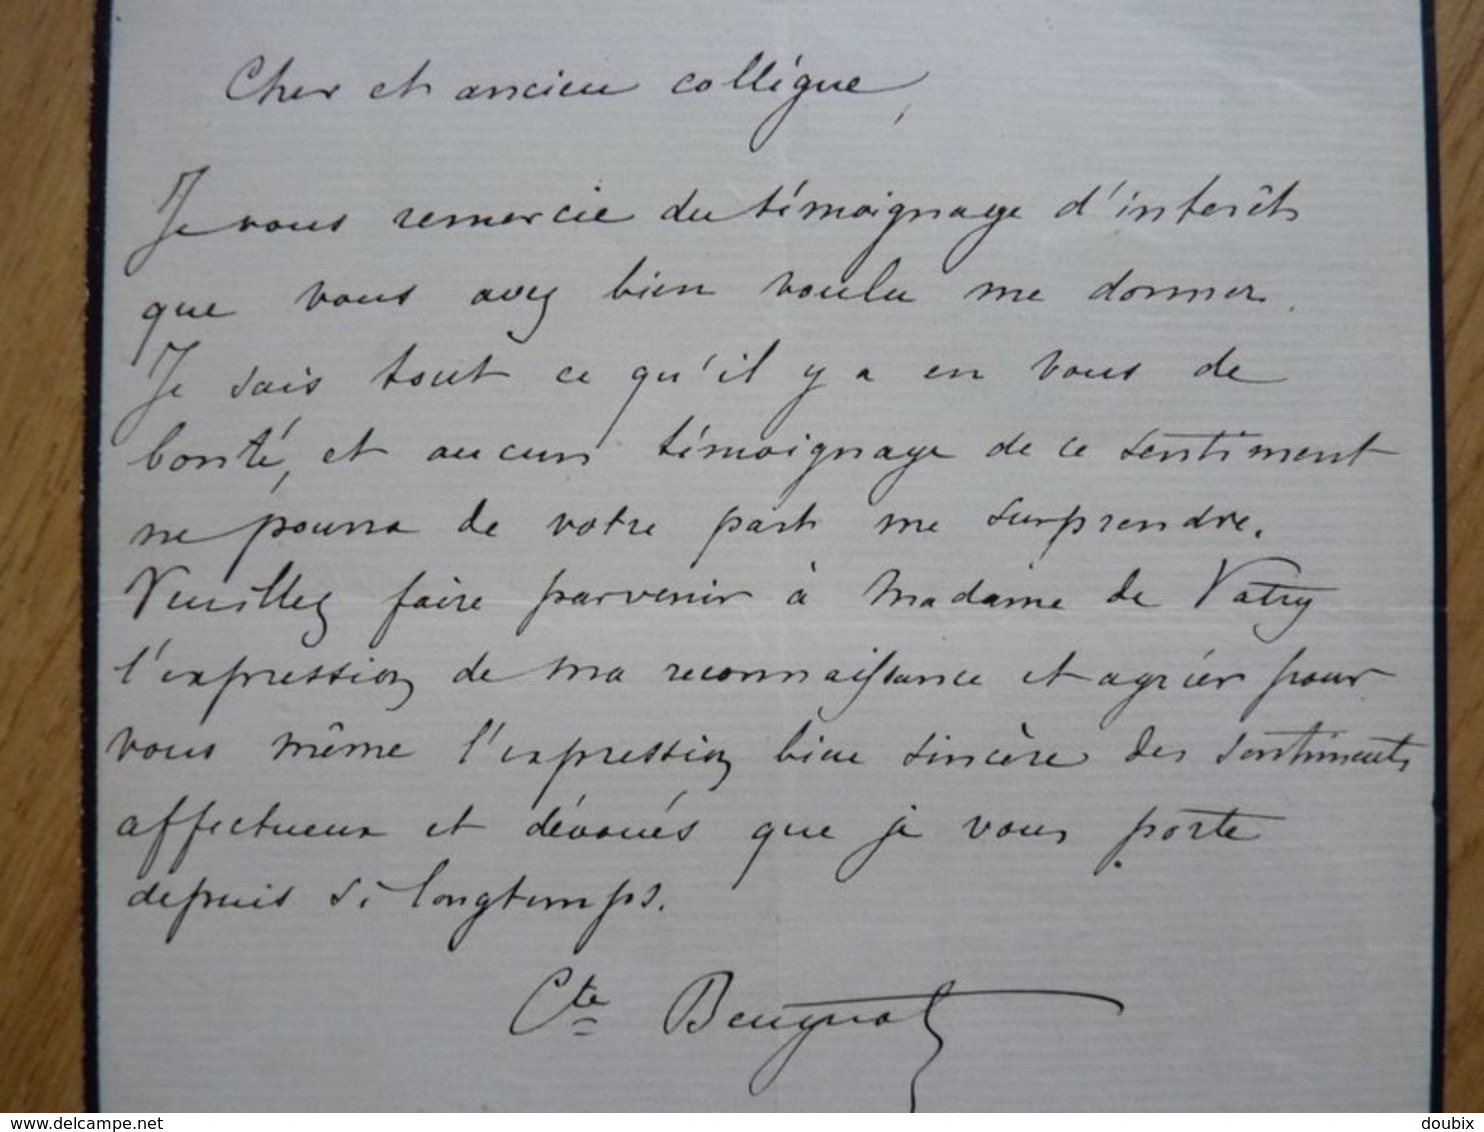 Cher et ancien collègue,
Je vous remercie du témoignage d'intérêt
que vous avez bien voulu me donner.
Je sais tout ce qu'il y a en vous de
bonté, et aucun témoignage de ce sentiment
ne pourra de votre part me surprendre.
Veuillez faire parvenir à Madame de Vatry
l'expression de ma reconnaissance et agréer pour
vous même l'expression bien sincère des sentiments
affectueux et dévoués que je vous porte
depuis si longtemps.
Cte Beugnot
delcampe.net
doubix